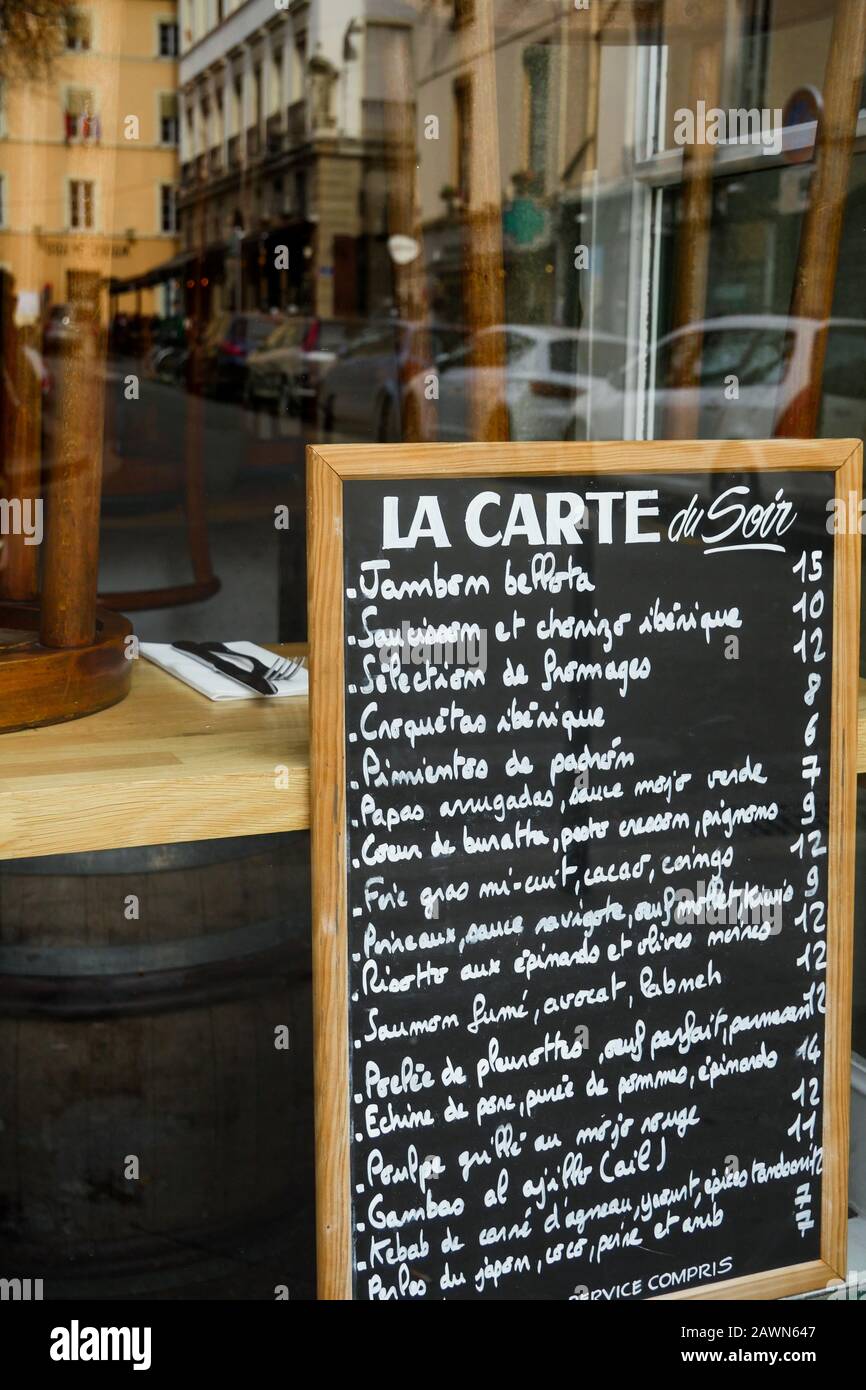 LA CARTE du Soir
. Jambon bellota 15
. Saucisson et chorizo ibérique 10
. Sélection de fromages 12
. Croquetas ibérique 8
. Pimientos de padrón 6
. Papas arrugadas, sauce mojo verde 7
. Coeur de buratta, pesto cresson, pignons 9
. Foie gras mi-cuit, cacao, coings 12
. Poireaux, sauce ravigote, oeuf mollet, kiwis 9
. Risotto aux épinards et olives noires 12
. Saumon fumé, avocat, labneh 12
. Poelée de pleurottes, oeuf parfait, parmesan 12
. Echine de porc, purée de pommes, épinards 14
. Poulpe grillé au mojo rouge 12
. Gambas al ajillo (ail) 11
. Kebab de carré d'agneau, yaourt, épices 12
. Perles du japon, coco, poire et aneth 7
7
SERVICE COMPRIS
alamy
Image ID: 2AWN647
www.alamy.com